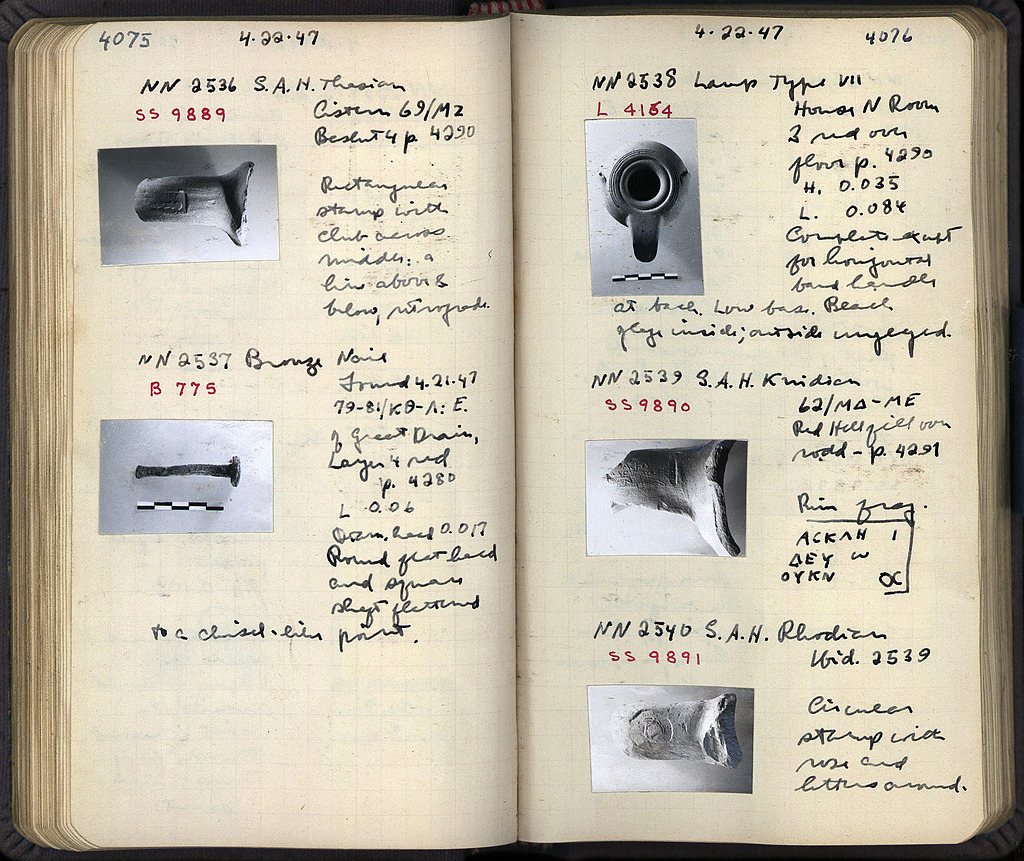 4075 4·22·47
NN 2536 S.A.H. Thasian
SS 9889
Cistern 69/MZ
Basket 4 p. 4290
Rectangular
stamp with
club across
middle: a
line above &
below, retrograde.
NN 2537 Bronze Nail
B 775
Found 4.21.47
79-81/ΚΘ-Λ: E.
of Great Drain,
Layer 4 red
p. 4280
L 0.06
Diam. head 0.017
Round flat head
and square
shaft flattened
to a chisel-like point.
4·22·47 4076
NN 2538 Lamp Type VII
L 4154
House N Room
3 red over
floor p. 4290
H. 0.035
L. 0.084
Complete except
for horizontal
band handle
at back. Low base. Black
glaze inside; outside unglazed.
NN 2539 S.A.H. Knidian
SS 9890
62/ΜΔ-ΜΕ
Red Hell fill over
road - p. 4291
Rim frag.
ΑCΚΛΗ Ι
ΔΕΥ W
ΟΥΚΝ ΟC
NN 2540 S.A.H. Rhodian
SS 9891
Ibid. 2539
Circular
stamp with
rose and
letters around.